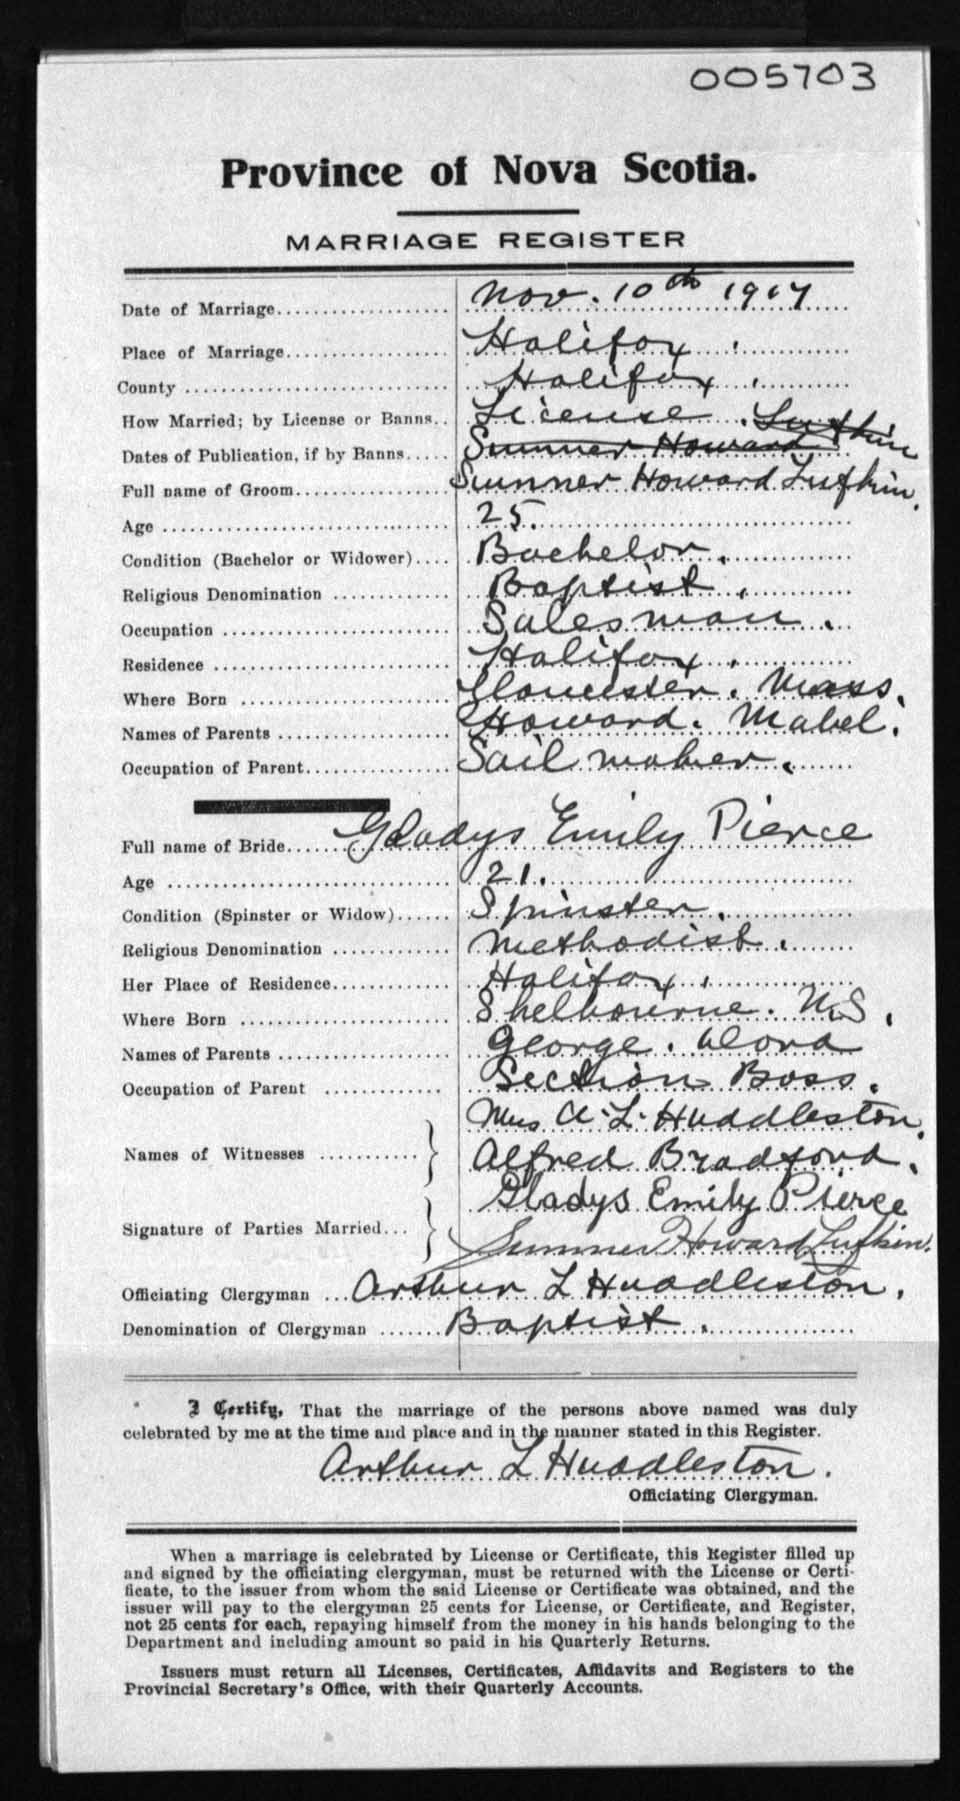 005703
Province of Nova Scotia.
MARRIAGE REGISTER
Date of Marriage Nov. 10th 1917
Place of Marriage Halifax.
County Halifax.
How Married; by License or Banns License. Lufkin
Dates of Publication, if by Banns Sumner Howard
Full name of Groom Sumner Howard Lufkin.
Age 25.
Condition (Bachelor or Widower) Bachelor.
Religious Denomination Baptist.
Occupation Salesman.
Residence Halifax.
Where Born Gloucester. Mass.
Names of Parents Howard. Mabel.
Occupation of Parent Sail maker.
Full name of Bride Gladys Emily Pierce
Age 21.
Condition (Spinster or Widow) Spinster.
Religious Denomination Methodist.
Her Place of Residence Halifax.
Where Born Shelbourne. N.S.
Names of Parents George.
Occupation of Parent Section Boss.
Mrs A. L. Huddleston.
Names of Witnesses Alfred Bradford.
Gladys Emily Pierce
Signature of Parties Married Sumner Howard Lufkin.
Officiating Clergyman Arthur L Huddleston.
Denomination of Clergyman Baptist.
I Certify, That the marriage of the persons above named was duly
celebrated by me at the time and place and in the manner stated in this Register.
Arthur L Huddleston.
Officiating Clergyman.
When a marriage is celebrated by License or Certificate, this Register filled up
and signed by the officiating clergyman, must be returned with the License or Certi-
ficate, to the issuer from whom the said License or Certificate was obtained, and the
issuer will pay to the clergyman 25 cents for License, or Certificate, and Register,
not 25 cents for each, repaying himself from the money in his hands belonging to the
Department and including amount so paid in his Quarterly Returns.
Issuers must return all Licenses, Certificates, Affidavits and Registers to the
Provincial Secretary's Office, with their Quarterly Accounts.